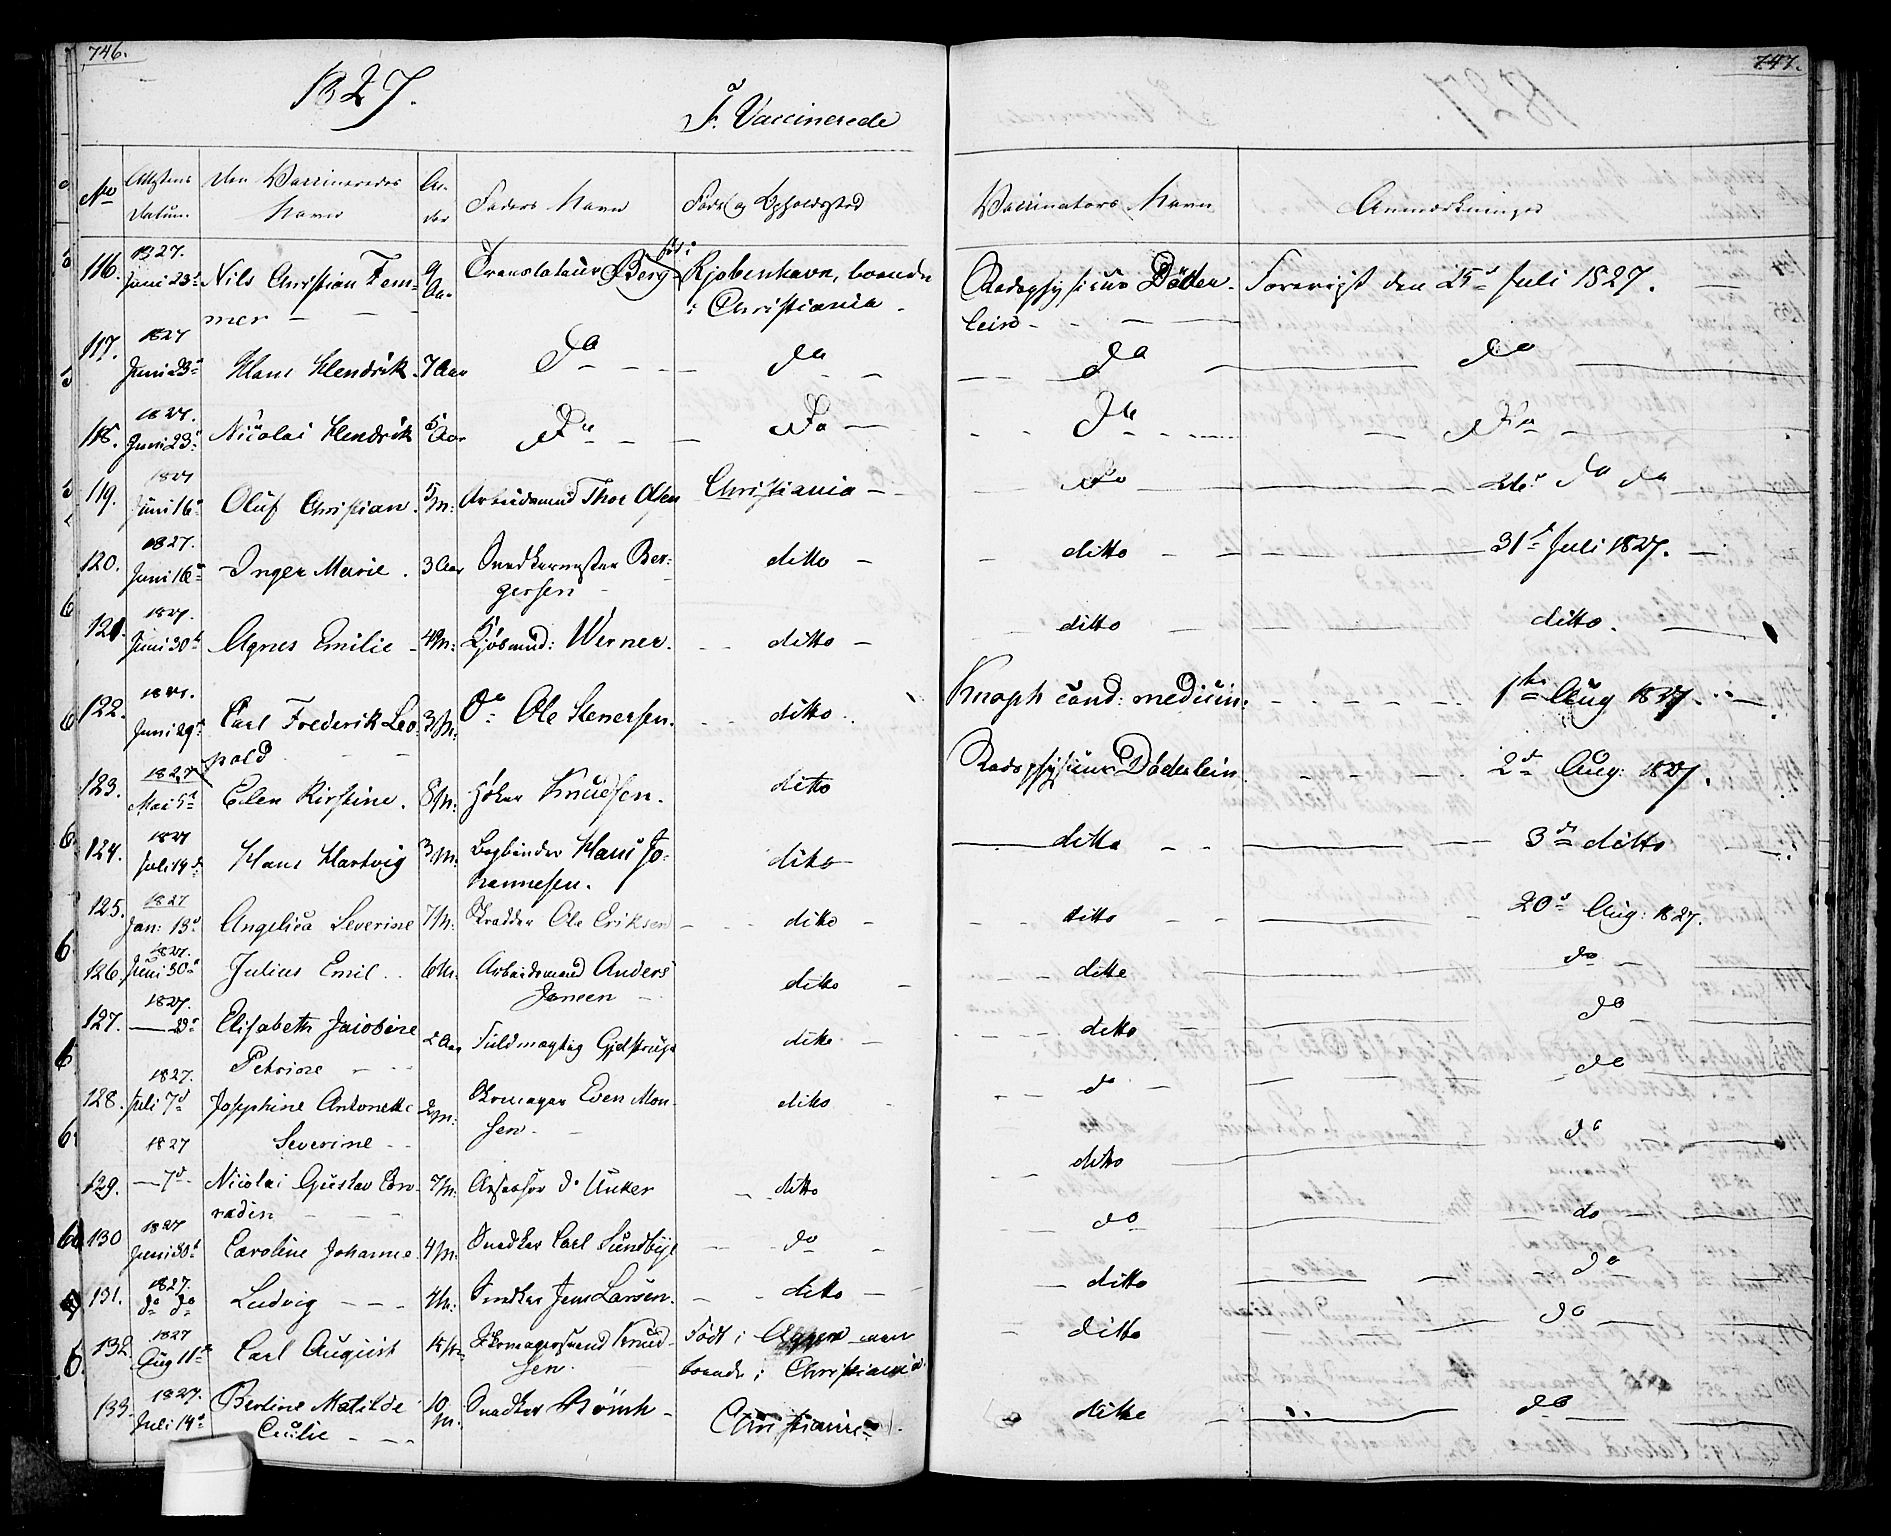 746.
1827.
F. Vaccinerede
No
Attestens Datum
Den Vaccineredes Navn
Alder
Faders Navn
Føde og Opholdssted
116. 1827. Juni 23d Nils Christian Temmer 9 Aar Translateur Berg født i Kjøbenhavn, boende i Christiania
117. 1827 Juni 23d Hans Hendrik 7 Aar Do do
118. 1827. Juni 23d Nicolai Hendrik 5 Aar Do Do
119. 1827 Juni 16d Oluf Christian 5 M: Arbeidsmand Thor Olsen Christiania
120. 1827. Juni 16d Inger Marie. 3 Aar Snedkermester Bergersen ditto
121. 1827. Juni 30d Agnes Emilie 4 M: Kjøbmd: Werner. ditto
122. 1827. Juni 29d Carl Frederik Leopold 3 M: Do Ole Stenersen. ditto
123. 1827 Mai 5d Elen Kirstine. 8 M: Høker Knudsen. ditto
124. 1827 Juli 14d Hans Hartvig 3 M: Bogbinder Hans Johannesen. ditto
125. 1827 Jan: 13d Angelica Severine 7 M: Skrædder Ole Eriksen ditto
126. 1827. Juni 30d Julius Emil 6 M. Arbeidsmand Anders Jonsen ditto
127. 1827. do Elisabeth Jacobine Petrine 2 Aar Fuldmægtig ditto
128. 1827. Juli 7d Josephine Antonette Severine 2 M: Skomager Even Monsen ditto
129. 1827 7d Nicolai Gustav Conradin 7 M: Assessor d' Unker ditto
130 1827 Juni 30d Caroline Johanne 4 M: Snedker Carl Sundbye do
131. 1827. do do Ludvig 4 M: Snedker Jens Larsen. ditto
132. 1827 Aug 11d Carl August 15 M Skomagersvend Knudsen Født i men boende i Christiania
133. 1827. Juli 14d Berline Matilde Cecilie 10 M. Snedker Christiania
747.
Vaccinators Navn
Anmærkninger
Radsphysicus Döderlein Forevist den 25d Juli 1827.
do do
do do
Do 26d do do
ditto 31d Juli 1827.
ditto ditto.
Knoph cand: medicin: 1ste Aug 1827.
Radsphysicus Döderlein 2d Aug: 1827.
ditto 3d ditto
ditto 20d Aug: 1827.
ditto do
ditto do
do do
ditto do
do do
ditto do
ditto do
ditto do